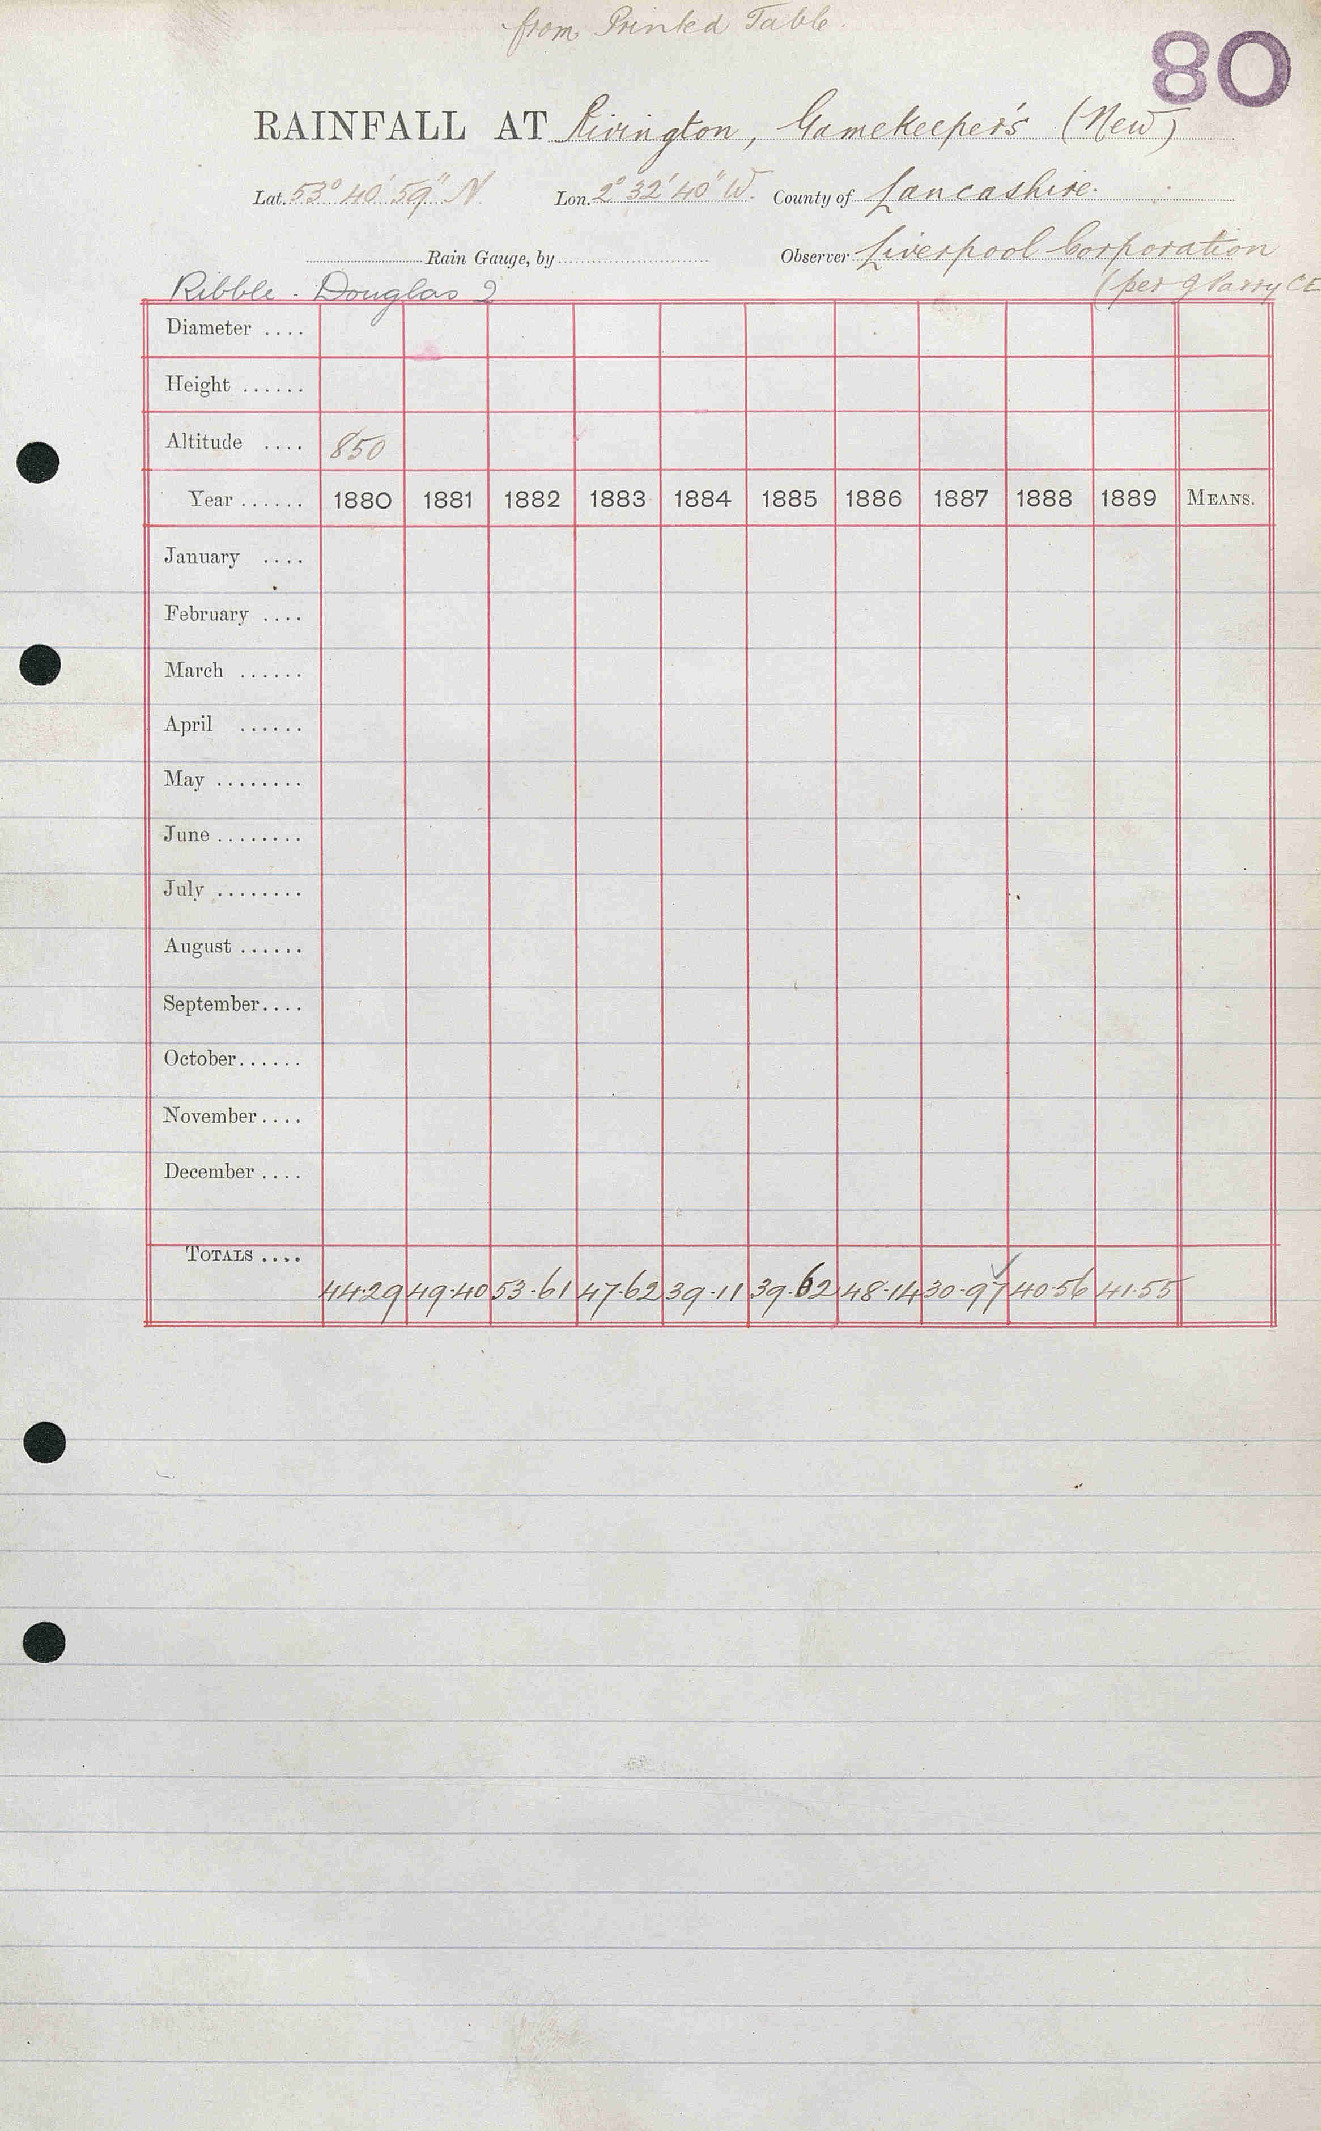 from Printed Table.
80
RAINFALL AT Rivington, Gamekeeper's (New)
Lat. 53° 40' 59" N Lon. 2° 32' 40" W. County of Lancashire.
Rain Gauge, by Observer Liverpool Corporation
Ribble. Douglas 2 (per J Parry CE
Diameter ....
Height ......
Altitude .... 850
Year ...... 1880 1881 1882 1883 1884 1885 1886 1887 1888 1889 MEANS.
January ....
February ....
March ......
April ......
May ........
June ........
July ........
August ......
September ....
October ......
November ....
December ....
TOTALS ....
44·29 49·40 53·61 47·62 39·11 39·62 48·14 30·97 40·56 41·55